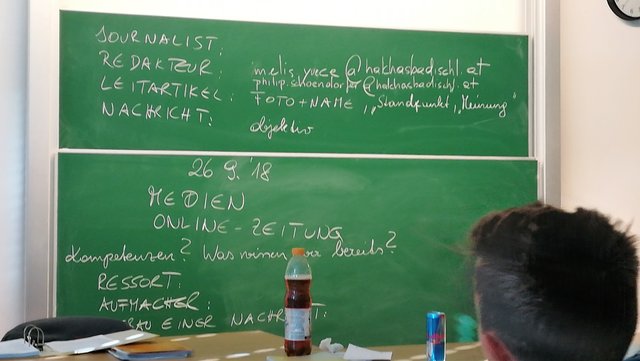 JOURNALIST:
REDAKTEUR:
LEITARTIKEL:
NACHRICHT:
melis.yuece@hakhasbadischl.at
philip.schoendorfer@hakhasbadischl.at
FOTO + NAME „Standpunkt, Meinung"
objektiv
26.9.'18
MEDIEN
ONLINE-ZEITUNG
Kompetenzen? Was wissen wir bereits?
RESSORT:
AUFMACHER:
EINER NACHRICHT: